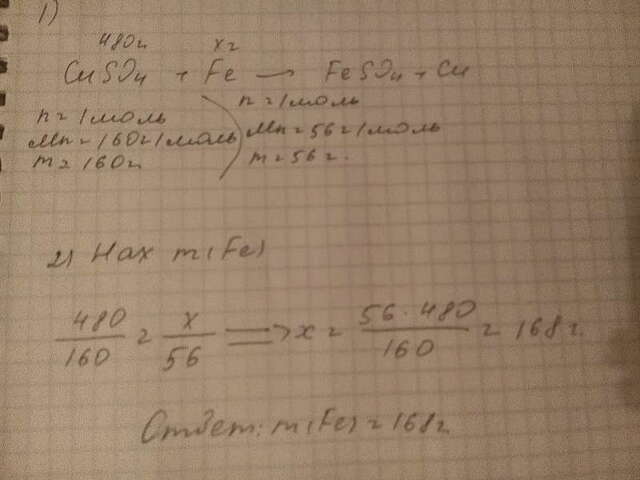 1)
480г xг
CuSO4 + Fe → FeSO4 + Cu
n = 1моль n = 1моль
Mn = 160г/моль Mn = 56г/моль
m = 160г m = 56г.
2) Нах m(Fe)
480/160 = x/56 => x = 56·480/160 = 168г.
Ответ: m(Fe) = 168г